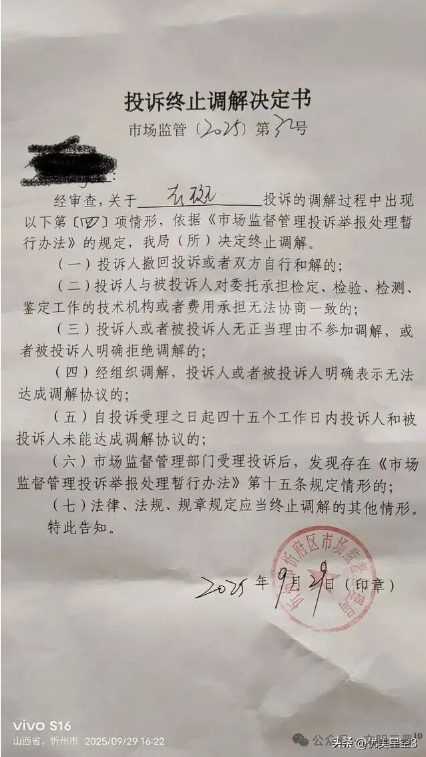 投诉终止调解决定书
市场监管〔2025〕第32号
经审查,关于 投诉的调解过程中出现
以下第〔四〕项情形,依据《市场监督管理投诉举报处理暂
行办法》的规定,我局(所)决定终止调解。
(一)投诉人撤回投诉或者双方自行和解的;
(二)投诉人与被投诉人对委托承担检定、检验、检测、
鉴定工作的技术机构或者费用承担无法协商一致的;
(三)投诉人或者被投诉人无正当理由不参加调解,或
者被投诉人明确拒绝调解的;
(四)经组织调解,投诉人或者被投诉人明确表示无法
达成调解协议的;
(五)自投诉受理之日起四十五个工作日内投诉人和被
投诉人未能达成调解协议的;
(六)市场监督管理部门受理投诉后,发现存在《市场
监督管理投诉举报处理暂行办法》第十五条规定情形的;
(七)法律、法规、规章规定应当终止调解的其他情形。
特此告知。
忻府区市场监督管理局
2025年9月29日(印章)
vivo S16
山西省,忻州市 2025/09/29 16:22
公众号
头条 @优美星空3